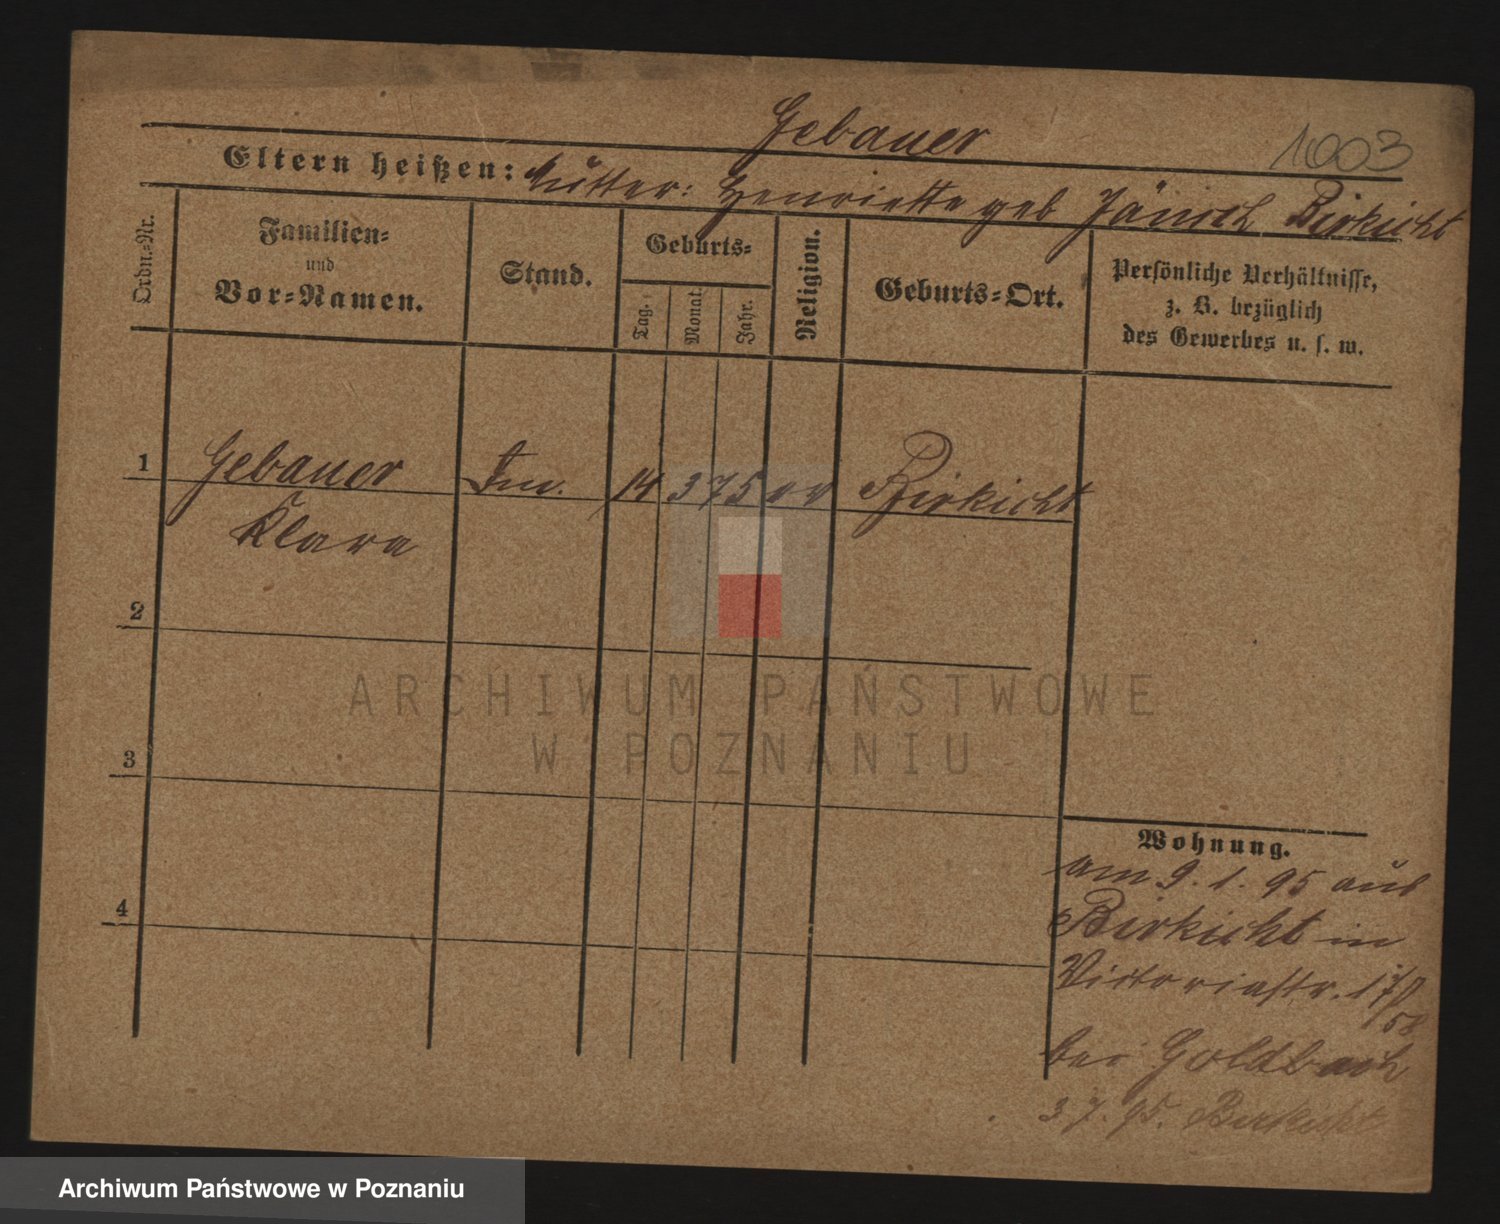 Gebauer
1003
Eltern heißen: Mutter: Henriette geb Jänsch Birkicht
Ordn.-Nr.
Familien-
und
Vor-Namen.
Stand.
Geburts-
Tag.
Monat.
Jahr.
Religion.
Geburts-Ort.
Persönliche Verhältnisse,
z. B. bezüglich
des Gewerbes u. s. w.
1 Gebauer 14 3 75 Birkicht
Klara
2
3
4
ARCHIWUM PAŃSTWOWE
W POZNANIU
Wohnung.
am 9. 1. 95 aus
Birkicht in
Victoriastr. 17
bei Goldbach
3 7. 95. Birkicht
Archiwum Państwowe w Poznaniu